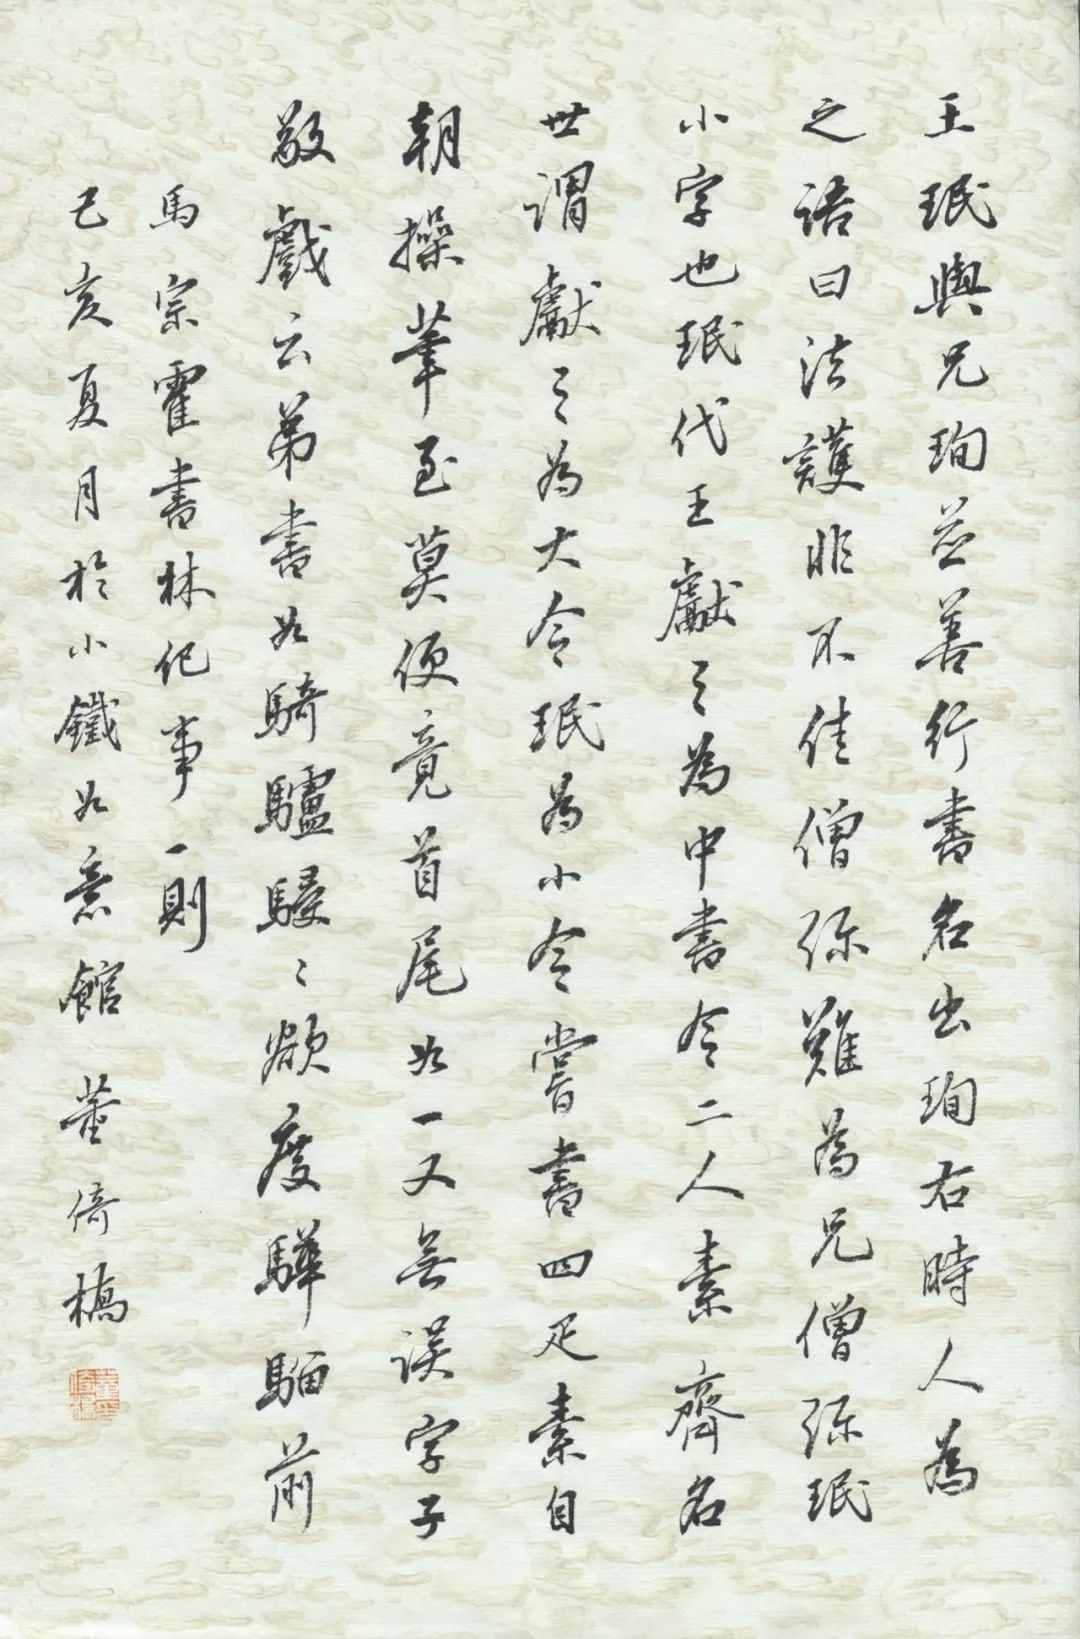 王珉與兄珣並善行書名出珣右時人為
之語曰法護非不佳僧弥難為兄僧弥珉
小字也珉代王獻之為中書令二人素齊名
世謂獻之為大令珉為小令嘗書四疋素自
朝操筆至莫便竟首尾如一又無误字子
敬戲云弟書如騎驢駸〻欲度驊騮前
馬宗霍書林纪事一則
己亥夏月於小鐵如意館 董倚橋